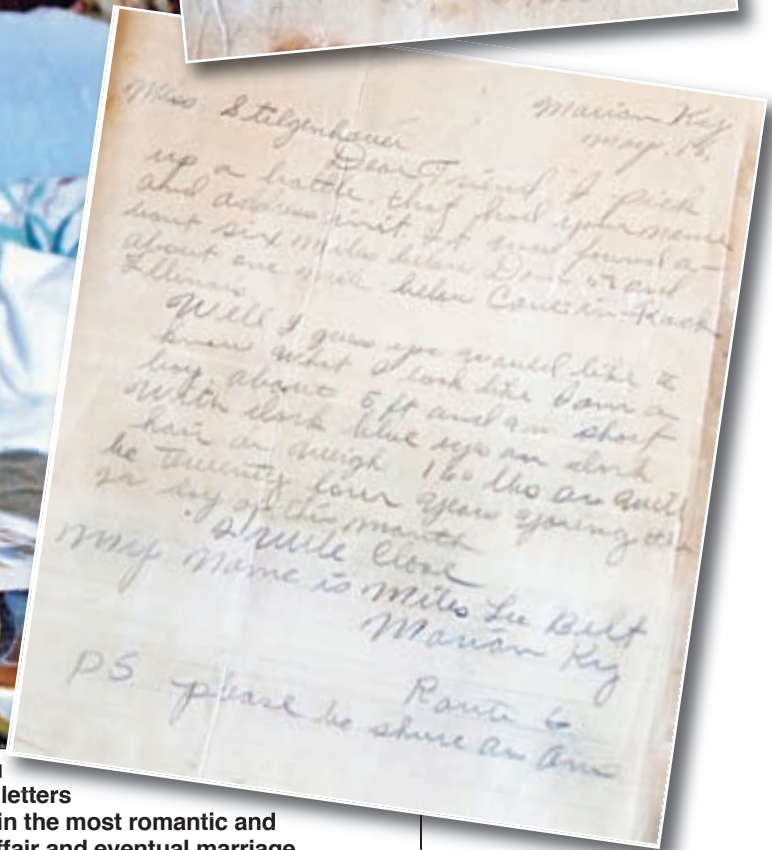 Marion Ky
May. 18.
Miss. Stelzenhauer
Dear Friend, I pick
up a bottle that had your name
and address in it it was found a-
bout six miles below Dam and
about one mile below Cave-in-Rock
Illinois
Well I guess you would like to
know what I look like I am a
boy about 5 ft and an short
with dark blue eyes an dark
hair an weigh 160 lbs an will
be twenty four years young
of this month
I will close
My name is Miles Lee Belt
Marion Ky
Route 6
PS please be shure an Ans
letters
in the most romantic and
ffair and eventual marriage